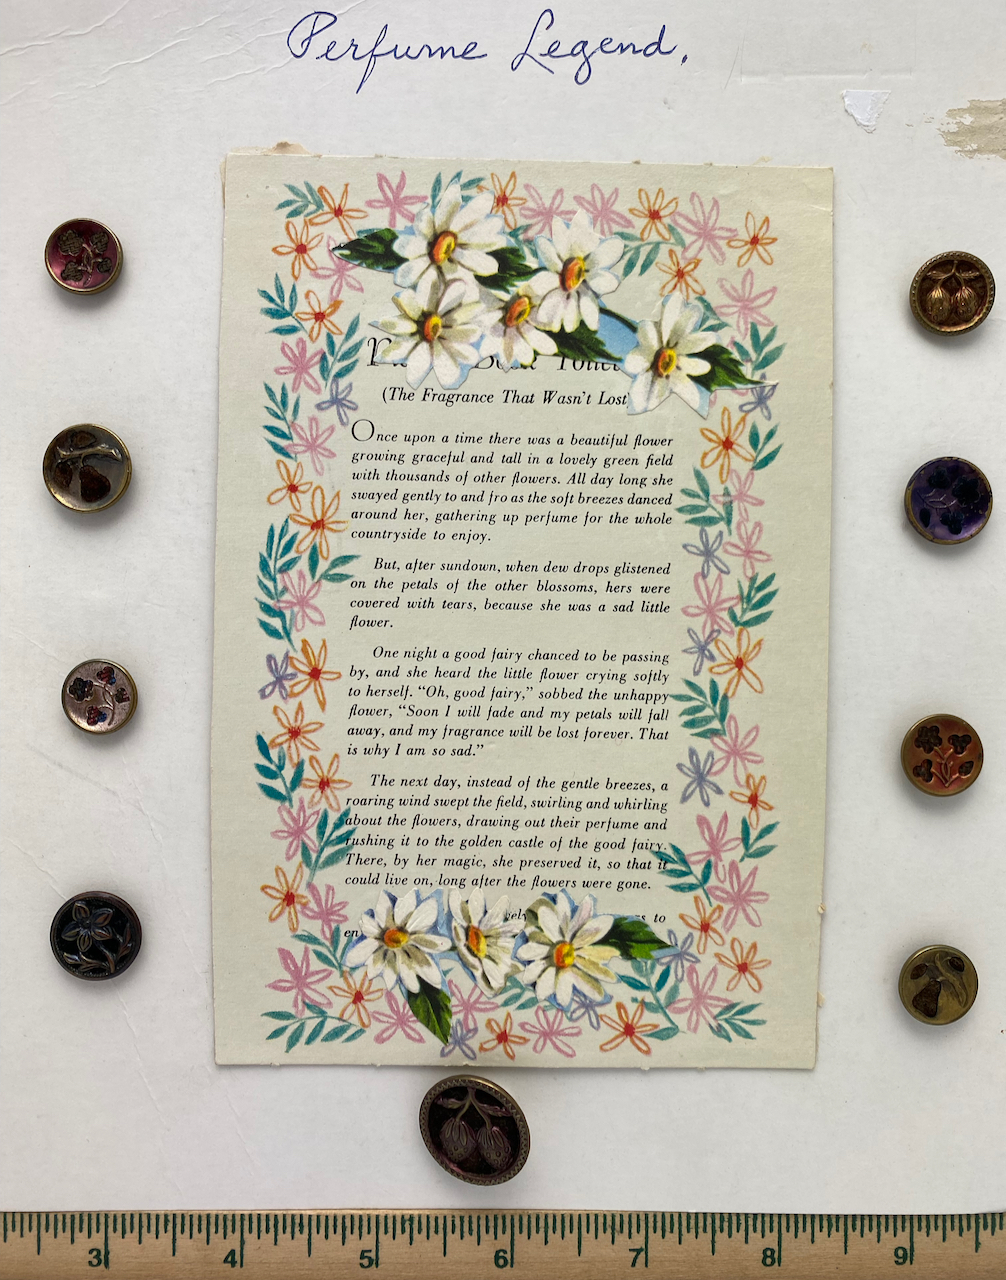 Perfume Legend.
Toilet
(The Fragrance That Wasn't Lost
Once upon a time there was a beautiful flower
growing graceful and tall in a lovely green field
with thousands of other flowers. All day long she
swayed gently to and fro as the soft breezes danced
around her, gathering up perfume for the whole
countryside to enjoy.
But, after sundown, when dew drops glistened
on the petals of the other blossoms, hers were
covered with tears, because she was a sad little
flower.
One night a good fairy chanced to be passing
by, and she heard the little flower crying softly
to herself. “Oh, good fairy,” sobbed the unhappy
flower, “Soon I will fade and my petals will fall
away, and my fragrance will be lost forever. That
is why I am so sad.”
The next day, instead of the gentle breezes, a
roaring wind swept the field, swirling and whirling
about the flowers, drawing out their perfume and
rushing it to the golden castle of the good fairy.
There, by her magic, she preserved it, so that it
could live on, long after the flowers were gone.
to
3 4 5 6 7 8 9